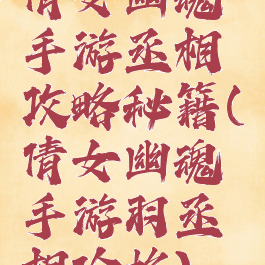 倩女幽魂
手游丞相
攻略秘籍(
倩女幽魂
手游羽丞
相攻略)